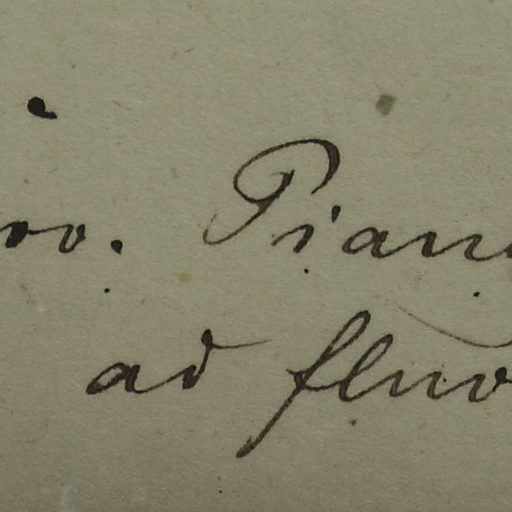 ro. Pian
ad fluv